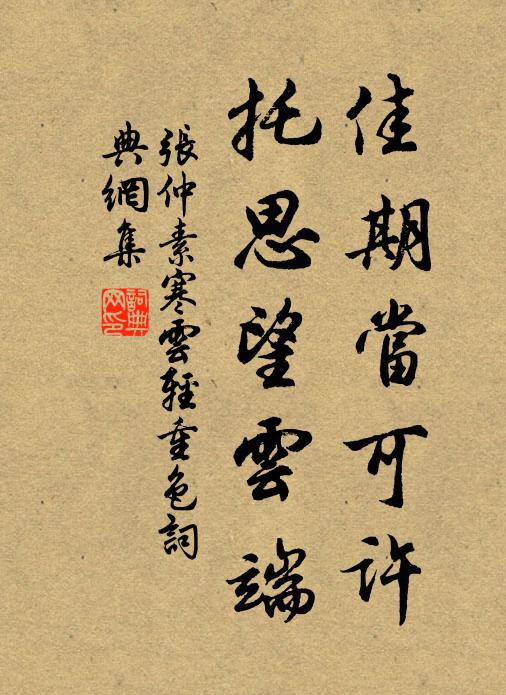 佳期當可許
托思望雲端
張仲素寒雲輕重色詞
典網集
詞典
网印